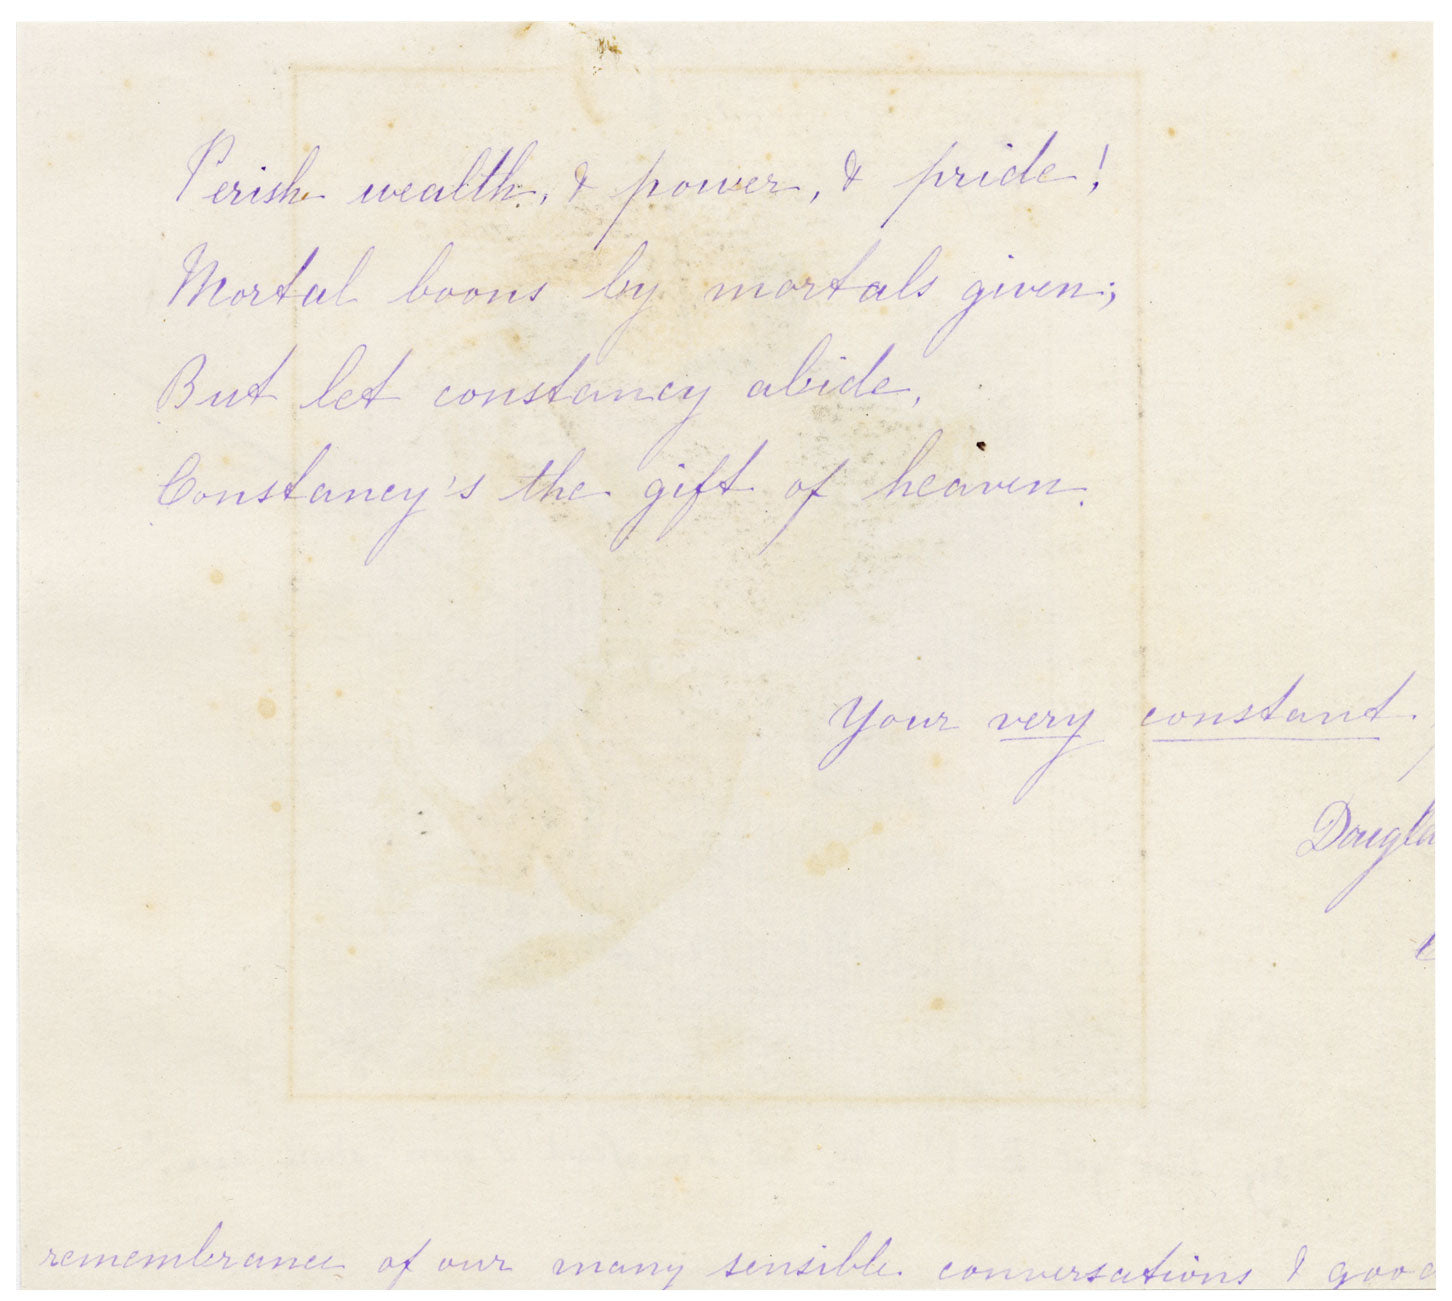 Perish wealth, & power, & pride!
Mortal boons by mortals given;
But let constancy abide,
Constancy's the gift of heaven.
Your very constant,
Dougla
remembrance of our many sensible conversations & good